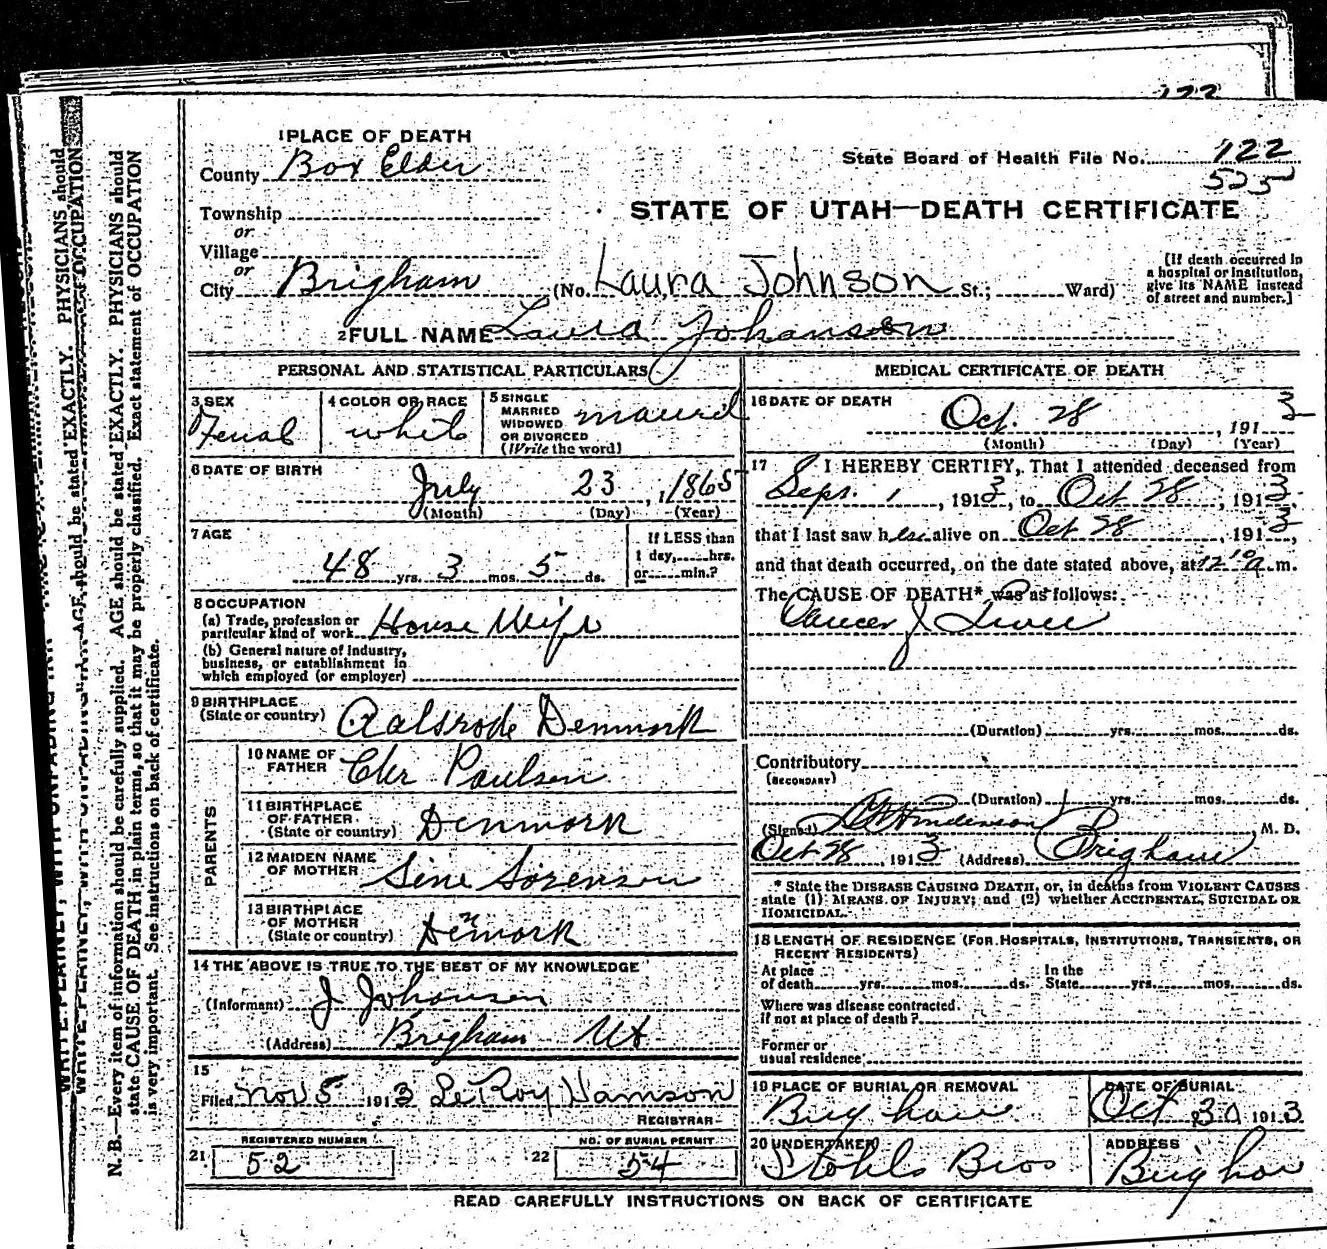 122
1 PLACE OF DEATH
County Box Elder
State Board of Health File No. 122
525
Township
or
Village
or
City Brigham (No. Laura Johnson St.; Ward)
STATE OF UTAH—DEATH CERTIFICATE
[If death occurred in
a hospital or institution,
give its NAME instead
of street and number.]
2 FULL NAME Laura Johanson
PERSONAL AND STATISTICAL PARTICULARS
3 SEX
Femal
4 COLOR OR RACE
white
5 SINGLE
MARRIED
WIDOWED
OR DIVORCED
(Write the word)
maried
6 DATE OF BIRTH
July 23, 1865
(Month) (Day) (Year)
7 AGE
48 yrs. 3 mos. 5 ds.
If LESS than
1 day, hrs.
or min.?
8 OCCUPATION
(a) Trade, profession or
particular kind of work House Wife
(b) General nature of Industry,
business, or establishment in
which employed (or employer)
9 BIRTHPLACE
(State or country) Aalsrode Denmark
PARENTS
10 NAME OF
FATHER Chr Paulsen
11 BIRTHPLACE
OF FATHER
(State or country) Denmork
12 MAIDEN NAME
OF MOTHER Sine Sorenson
13 BIRTHPLACE
OF MOTHER
(State or country) Denmork
14 THE ABOVE IS TRUE TO THE BEST OF MY KNOWLEDGE
(Informant) J Johansen
(Address) Brigham Ut
15
Filed Nov 5 1913 LeRoy Hamson
REGISTRAR
REGISTERED NUMBER
21 52
NO. OF BURIAL PERMIT
22 54
MEDICAL CERTIFICATE OF DEATH
16 DATE OF DEATH
Oct. 28, 1913
(Month) (Day) (Year)
17 I HEREBY CERTIFY, That I attended deceased from
Sept. 1, 1913, to Oct 28 1913
that I last saw her alive on Oct 28, 1913,
and that death occurred, on the date stated above, at 12 10 a.m.
The CAUSE OF DEATH* was as follows:
Cancer of Liver
(Duration) yrs. mos. ds.
Contributory
(SECONDARY)
(Duration) 1 yrs. mos. ds.
(Signed) Henderson, M. D.
Oct 28, 1913 (Address) Brigham
* State the DISEASE CAUSING DEATH, or, in deaths from VIOLENT CAUSES
state (1) MEANS OF INJURY; and (2) whether ACCIDENTAL, SUICIDAL OR
HOMICIDAL.
18 LENGTH OF RESIDENCE (FOR HOSPITALS, INSTITUTIONS, TRANSIENTS, OR
RECENT RESIDENTS)
At place
of death yrs. mos. ds.
In the
State yrs. mos. ds.
Where was disease contracted.
If not at place of death?
Former or
usual residence
19 PLACE OF BURIAL OR REMOVAL
Brigham
DATE OF BURIAL
Oct 30 1913
20 UNDERTAKER
Stohls Bros
ADDRESS
Brigham
READ CAREFULLY INSTRUCTIONS ON BACK OF CERTIFICATE
N. B.—Every item of information should be carefully supplied. AGE should be stated EXACTLY. PHYSICIANS should
state CAUSE OF DEATH in plain terms, so that it may be properly classified. Exact statement of OCCUPATION
is very important. See instructions on back of certificate.